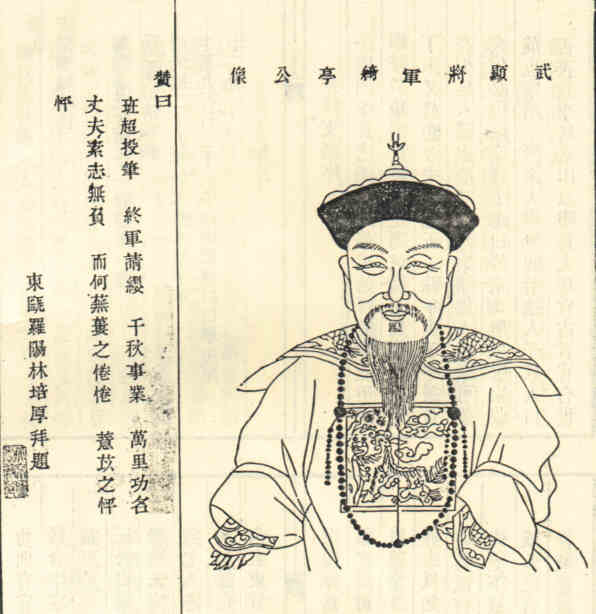 武顯將軍綺亭公像
贊曰
班超投筆 終軍請纓 千秋事業 萬里功名
丈夫素志無負 而何蕪蔞之惓惓 薏苡之怦
怦
東甌羅陽林培厚拜題